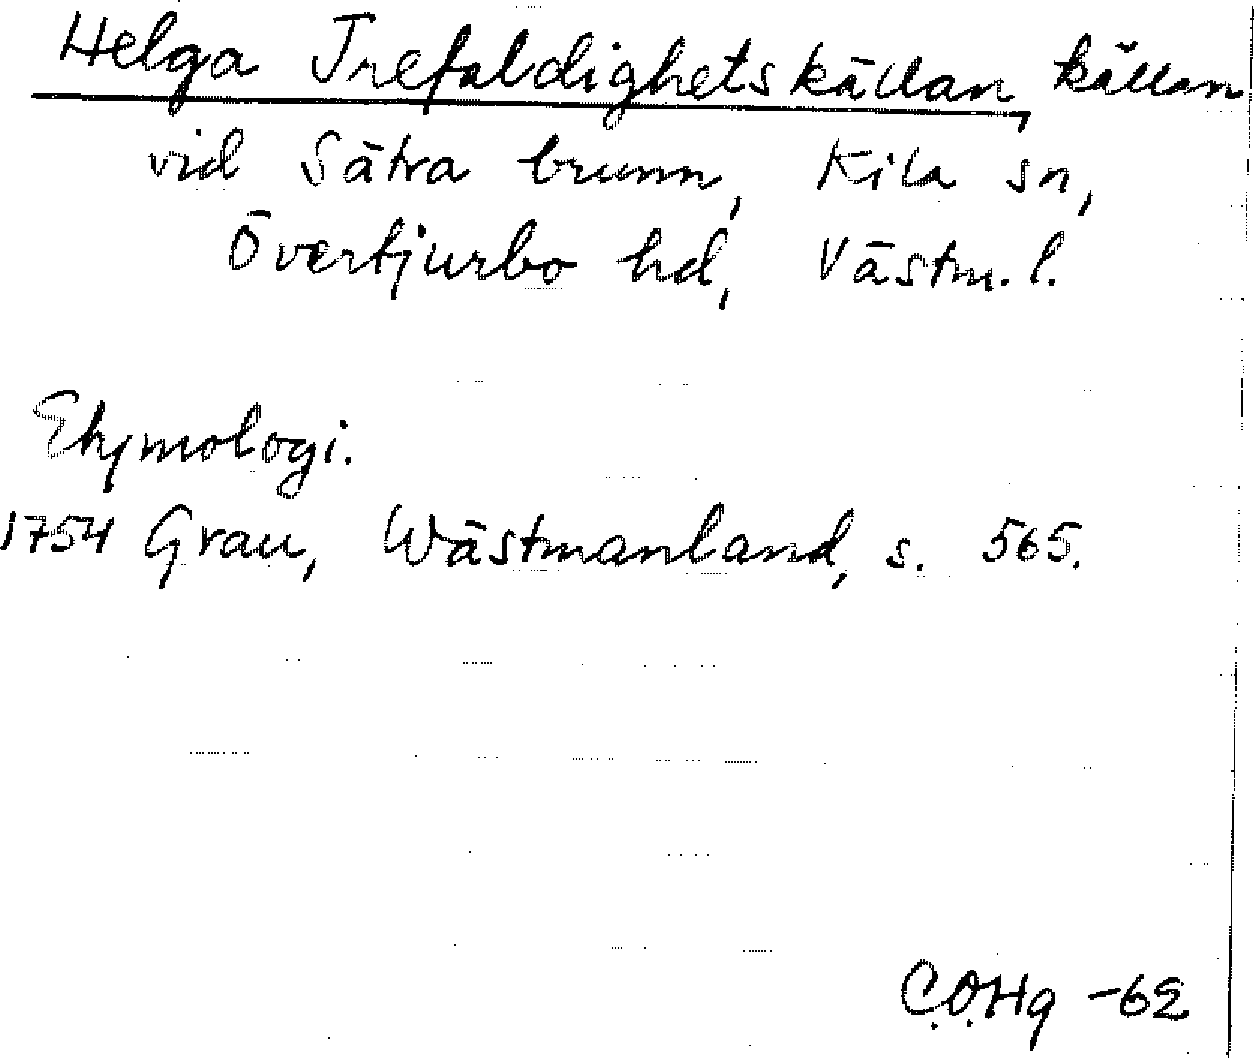 Helga Trefaldighetskällan, källan
vid Sätra brunn, Kila sn,
Övertjurbo hd, Västm. l.
Etymologi.
1754 Grau, Wästmanland, s. 565.
C.O.Hg -62